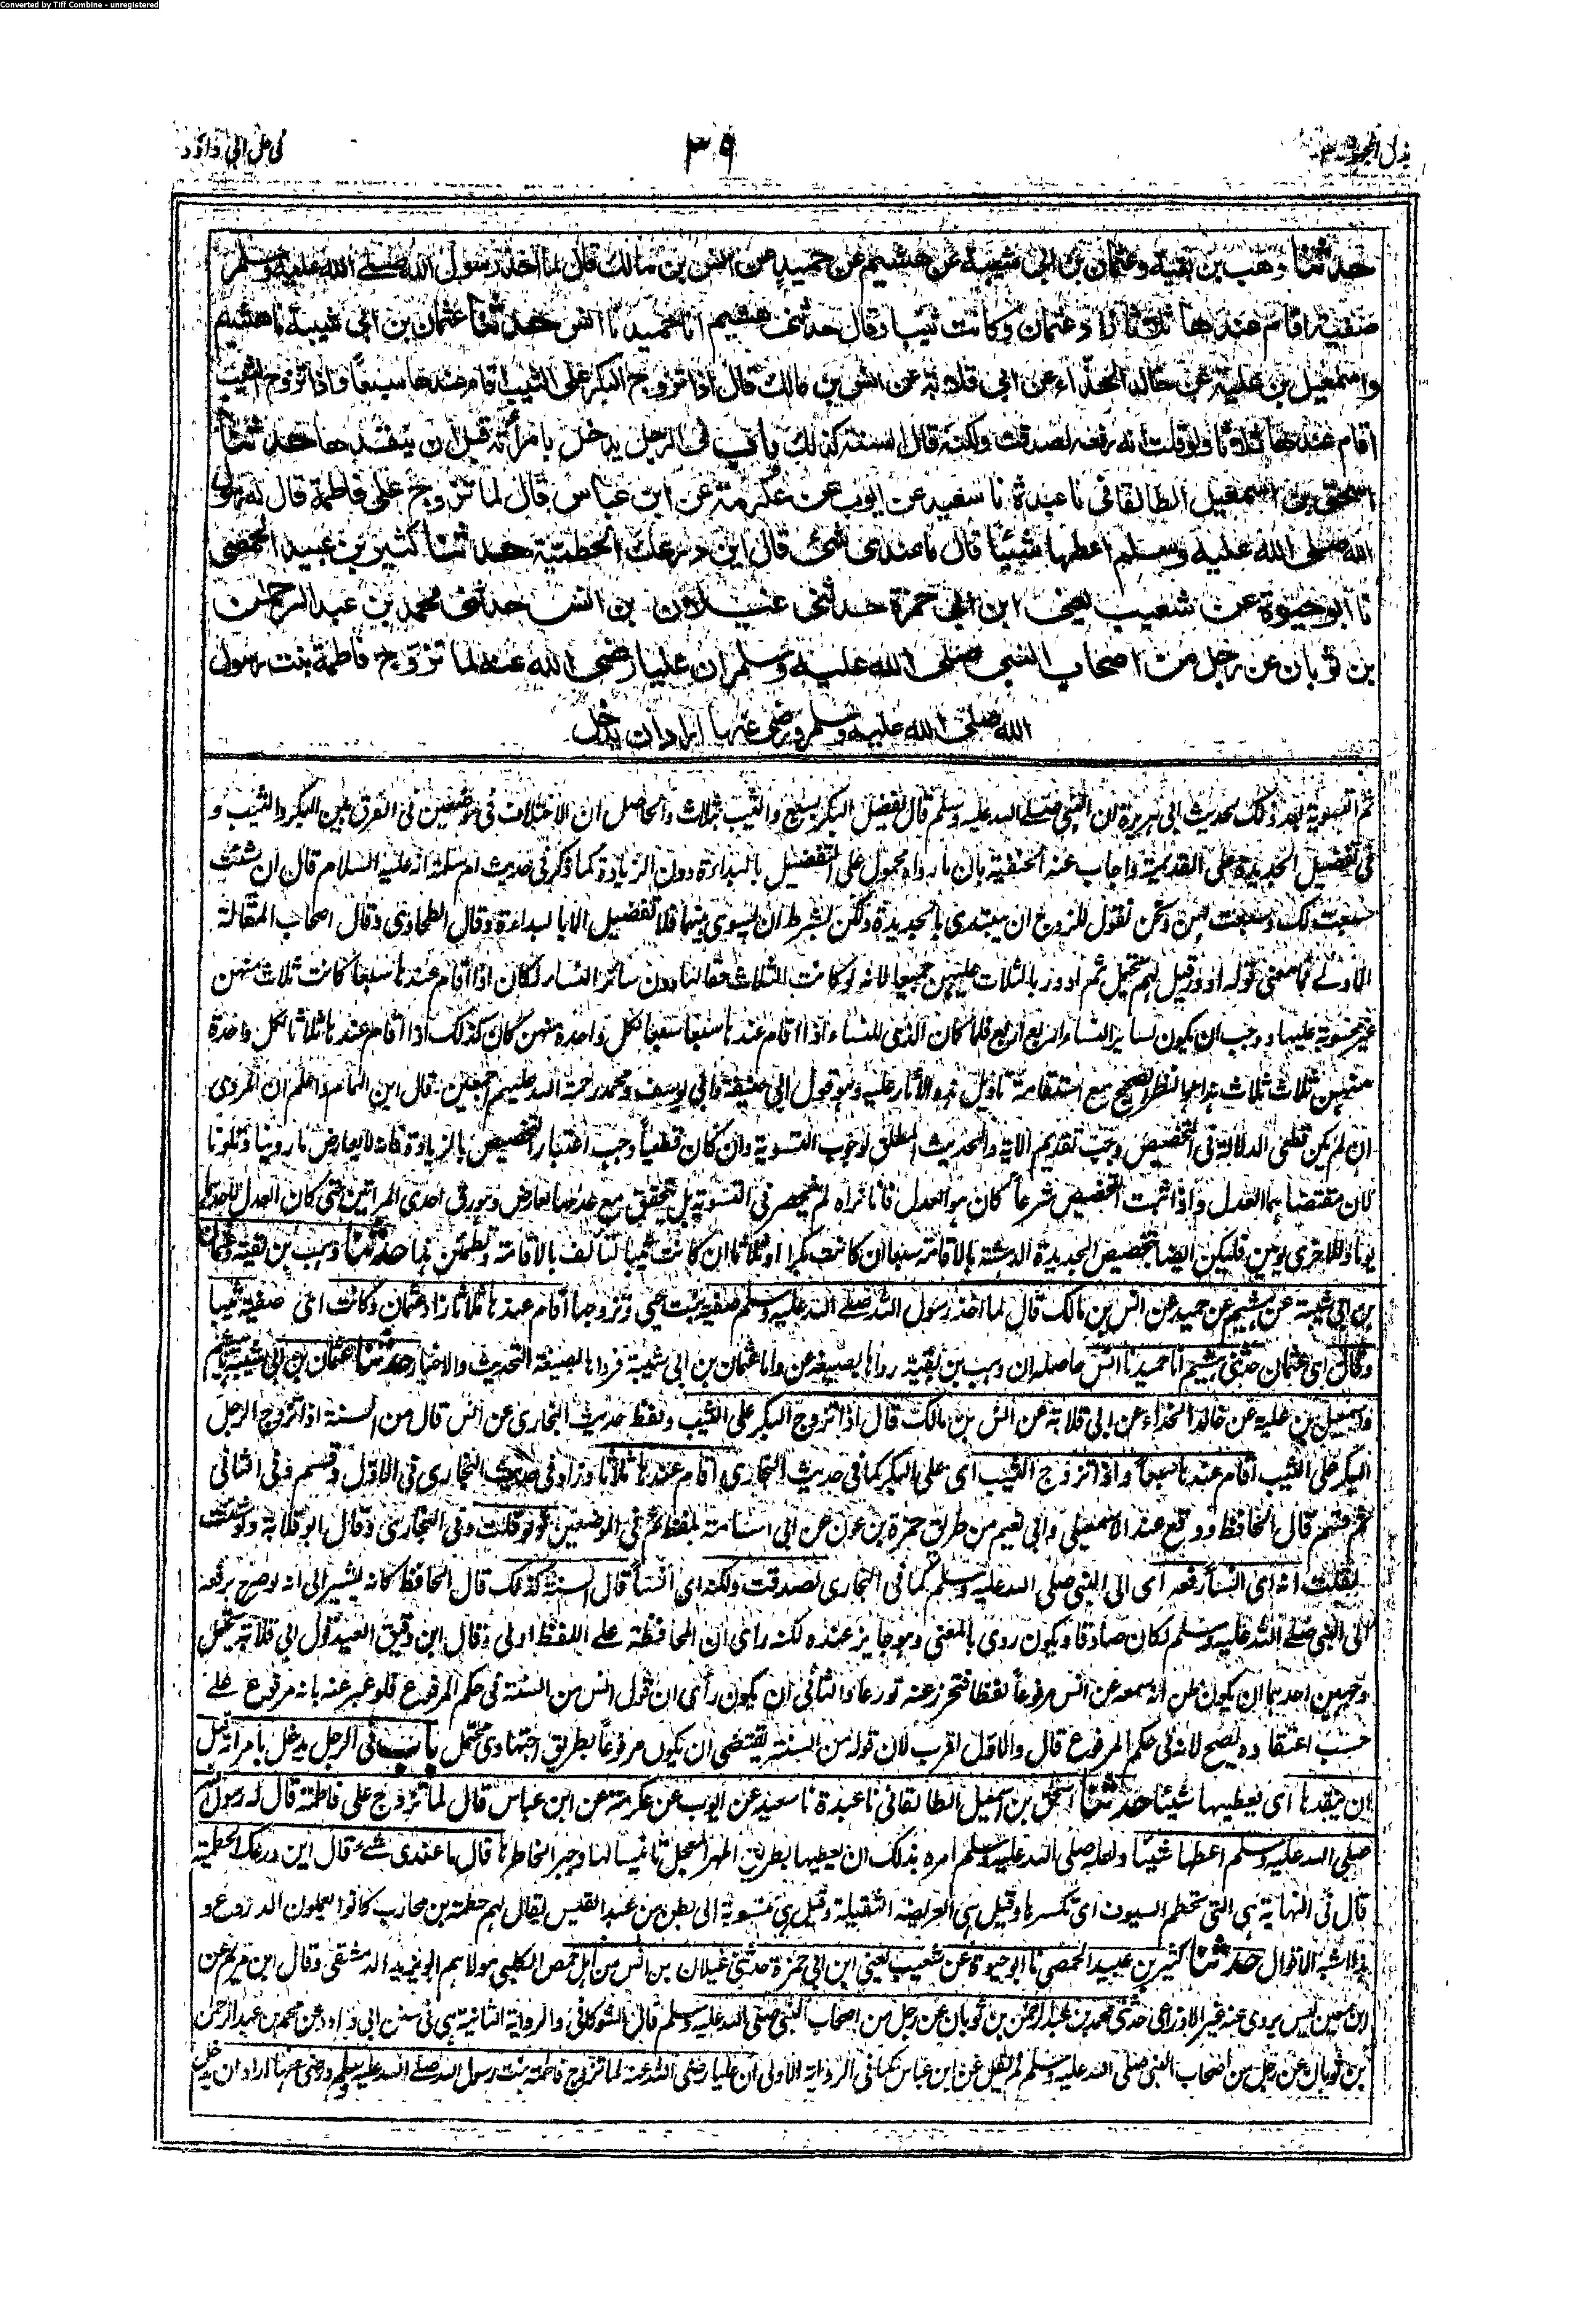 Converted by Tiff Combine - unregistered
بذل المجهود ٣
٣٩
في حل ابي داؤد
حدثنا وهب بن بقية وعثمان بن ابي شيبة عن هشيم عن حميد عن انس بن مالك قال لما اخذ رسول الله صلى الله عليه وسلم
صفية اقام عندها ثلثا زاد عثمان وكانت ثيبا وقال حدثني هشيم انا حميد نا انس حدثنا عثمان بن ابي شيبة نا هشيم
واسمعيل بن علية عن خالد الحذاء عن ابي قلابة عن انس بن مالك قال اذا تزوج البكر على الثيب اقام عندها سبعا واذا تزوج الثيب
اقام عندها ثلاثا ولو قلت انه رفعه لصدقت ولكنه قال السنة كذلك باب في الرجل يدخل بامرأته قبل ان ينقدها حدثنا
اسحق بن اسمعيل الطالقاني نا عبدة نا سعيد عن ايوب عن عكرمة عن ابن عباس قال لما تزوج علي فاطمة قال له رسول
الله صلى الله عليه وسلم اعطها شيئا قال ما عندي شئ قال اين درعك الحطمية حدثنا كثير بن عبيد الحمصي
نا ابو حيوة عن شعيب يعني ابن ابي حمزة حدثني غيلان بن انس حدثني محمد بن عبد الرحمن
بن ثوبان عن رجل من اصحاب النبي صلى الله عليه وسلم ان عليا رضي الله عنه لما تزوج فاطمة بنت رسول
الله صلى الله عليه وسلم ورضي عنها اراد ان يدخل
ثم التسوية بعد ذلك لحديث ابي هريرة ان النبي صلى الله عليه وسلم قال تفضل البكر بسبع والثيب بثلاث والحاصل ان الاختلاف في موضعين في الفرق بين البكر والثيب و
في تفضيل الجديدة على القديمة واجاب عنه الحنفية بان ما رواه محمول على التفضيل بالبداءة دون الزيادة كما ذكر في حديث ام سلمة انه عليه السلام قال ان شئت
سبعت لك وسبعت لهن ونحن نقول للزوج ان يبتدى بالجديدة ولكن بشرط ان يسوي بينهما فلا تفضيل الا بالبداءة وقال الطحاوي وقال اصحاب المقالة
الاولى فما معنى قوله ادور قيل لهم يحتمل ثم ادور بالثلاث عليهن جميعا لانه لو كانت الثلاث حقا لها دون سائر النساء لكان اذا اقام عندها سبعا كانت ثلاث منهن
غير محسوبة عليها ووجب ان يكون لسائر النساء اربع اربع فلما كان الذي للنساء اذا اقام عندها سبعا سبعا لكل واحدة منهن كان كذلك اذا اقام عندها ثلاثا لكل واحدة
منهن ثلاث ثلاث هذا هو النظر الصحيح مع استقامة تاويل هذه الآثار عليه وهو قول ابي حنيفة وابي يوسف ومحمد رحمة الله عليهم اجمعين قال ابن الهمام واعلم ان المروي
ان لم يكن قطعي الدلالة في التخصيص وجب تقديم الآية والحديث المطلق لوجوب التسوية وان كان قطعيا وجب اعتبار التخصيص بالزيادة فانه لا يعارض ما روينا وتلونا
لان مقتضاهما العدل واذا ثبت التخصيص شرعا كان هو العدل فانا نراه لم ينحصر في التسوية بل يتحقق مع عدمها لعارض وهو رق احدى المرأتين حتى كان العدل لاحداهما
يوما وللاخرى يومين فليكن ايضا تخصيص الجديدة الدهشة بالاقامة سبعا ان كانت بكرا وثلاثا ان كانت ثيبا لتألف بالاقامة وتطمئن بها حدثنا وهب بن بقية وعثمان
بن ابي شيبة عن هشيم عن حميد عن انس بن مالك قال لما اخذ رسول الله صلى الله عليه وسلم صفية بنت حيي وتزوجها اقام عندها ثلاثا زاد عثمان وكانت اي صفية ثيبا
وقال اي عثمان حدثني هشيم انا حميد نا انس حاصله ان وهب بن بقية رواها بصيغة عن واما عثمان بن ابي شيبة فرواها بصيغة التحديث والاخبار حدثنا عثمان بن ابي شيبة نا هشيم
واسمعيل بن علية عن خالد الحذاء عن ابي قلابة عن انس بن مالك قال اذا تزوج البكر على الثيب ولفظ حديث البخاري عن انس قال من السنة اذا تزوج الرجل
البكر على الثيب اقام عندها سبعا واذا تزوج الثيب اي على البكر كما في حديث البخاري اقام عندها ثلاثا وزاد في حديث البخاري في الاول وقسم وفي الثاني
ثم قسم قال الحافظ ووقع عند الاسمعيلي وابي نعيم من طريق حمزة بن عون عن ابي اسامة بلفظ ثم في الموضعين ولو قلت وفي البخاري وقال ابو قلابة ولو شئت
لقلت انه اي انسا رفعه اي الى النبي صلى الله عليه وسلم كما في البخاري لصدقت ولكنه اي انسا قال السنة كذلك قال الحافظ كانه يشير الى انه لو صرح برفعه
الى النبي صلى الله عليه وسلم لكان صادقا ويكون روى بالمعنى وهو جايز عنده لكنه راى ان المحافظة على اللفظ اولى وقال ابن دقيق العيد قول ابي قلابة يحتمل
وجهين احدهما ان يكون ظن انه سمعه عن انس مرفوعا لفظا فتحرز عنه تورعا والثاني ان يكون رأى ان قول انس من السنة في حكم المرفوع فلو عبر عنه بانه مرفوع على
حسب اعتقاده لصح لانه في حكم المرفوع قال والاول اقرب لان قوله من السنة يقتضي ان يكون مرفوعا بطريق اجتهادي محتمل باب في الرجل يدخل بامرأته قبل
ان ينقدها اى يعطيها شيئا حدثنا اسحق بن اسمعيل الطالقاني نا عبدة نا سعيد عن ايوب عن عكرمة عن ابن عباس قال لما تزوج علي فاطمة قال له رسول الله
صلى الله عليه وسلم اعطها شيئا ولعله صلى الله عليه وسلم امره بذلك ان يعطيها بطريق المهر المعجل تانيسا لها وجبر الخاطرها قال ما عندى شئ قال اين درعك الحطمية
قال في النهاية هي التي تحطم السيوف اى تكسرها وقيل هي العريضة الثقيلة وقيل هي منسوبة الى بطن من عبد القيس يقال لهم حطمة بن محارب كانوا يعملون الدروع و
هذا اشبه الاقوال حدثنا كثير بن عبيد الحمصي نا ابو حيوة عن شعيب يعني ابن ابي حمزة حدثني غيلان بن انس من اهل حمص الكلبي مولاهم ابو يزيد الدمشقي وقال ابن مريم عن
ابن معين ليس يروي عنه غير الاوزاعي حدثني محمد بن عبد الرحمن بن ثوبان عن رجل من اصحاب النبي صلى الله عليه وسلم قال الشوكاني والرواية الثانية هي في سنن ابي داود عن محمد بن عبد الرحمن
بن ثوبان عن رجل من اصحاب النبي صلى الله عليه وسلم لم يقل عن ابن عباس كما في الرواية الاولى ان عليا رضي الله عنه لما تزوج فاطمة بنت رسول الله صلى الله عليه وسلم ورضي عنها اراد ان يدخل